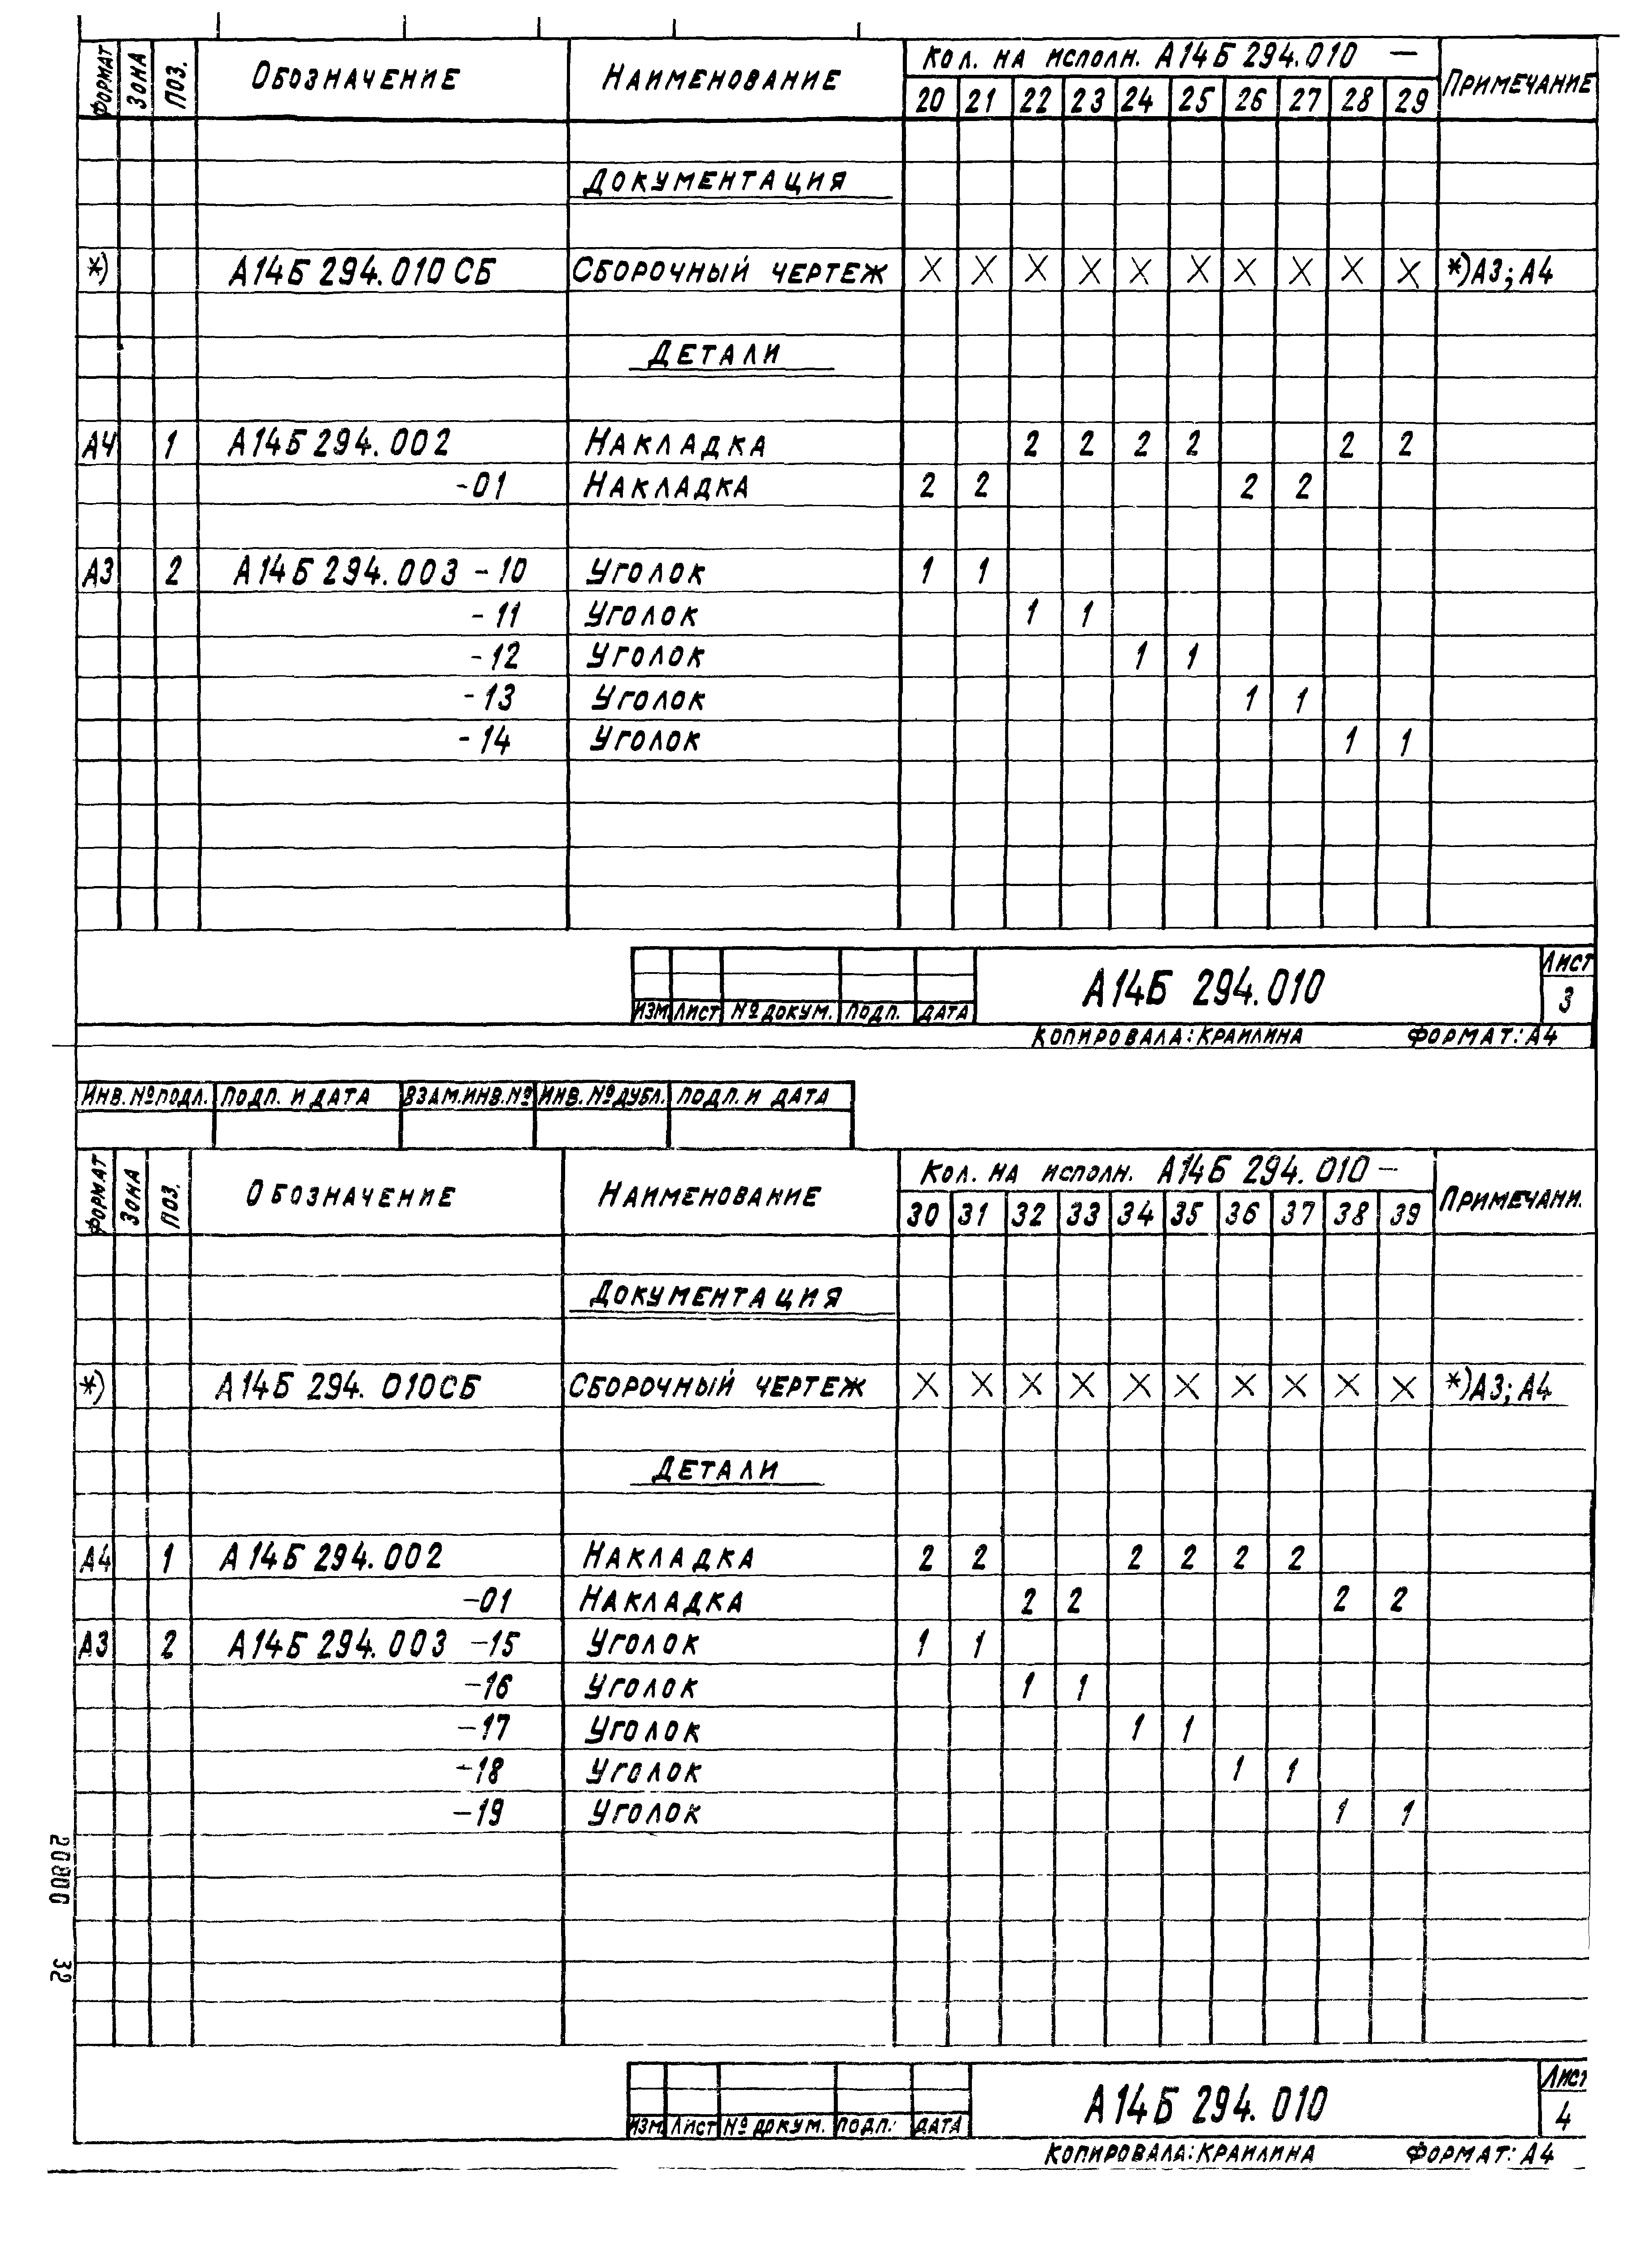 ФОРМАТ ЗОНА ПОЗ. ОБОЗНАЧЕНИЕ НАИМЕНОВАНИЕ КОЛ. НА ИСПОЛН. А14Б 294.010 — ПРИМЕЧАНИЕ
20 21 22 23 24 25 26 27 28 29
ДОКУМЕНТАЦИЯ
*) А14Б 294.010 СБ СБОРОЧНЫЙ ЧЕРТЕЖ X X X X X X X X X X *)А3; А4
ДЕТАЛИ
А4 1 А14Б 294.002 НАКЛАДКА 2 2 2 2 2 2
-01 НАКЛАДКА 2 2 2 2
А3 2 А14Б 294.003 -10 УГОЛОК 1 1
-11 УГОЛОК 1 1
-12 УГОЛОК 1 1
-13 УГОЛОК 1 1
-14 УГОЛОК 1 1
ИЗМ ЛИСТ № ДОКУМ. ПОДП. ДАТА А14Б 294.010 ЛИСТ 3
КОПИРОВАЛА: КРАИЛИНА ФОРМАТ: А4
ИНВ. № ПОДЛ. ПОДП. И ДАТА ВЗАМ. ИНВ. № ИНВ. № ДУБЛ. ПОДП. И ДАТА
ФОРМАТ ЗОНА ПОЗ. ОБОЗНАЧЕНИЕ НАИМЕНОВАНИЕ КОЛ. НА ИСПОЛН. А14Б 294.010 — ПРИМЕЧАНИ.
30 31 32 33 34 35 36 37 38 39
ДОКУМЕНТАЦИЯ
*) А14Б 294.010СБ СБОРОЧНЫЙ ЧЕРТЕЖ X X X X X X X X X X *)А3; А4
ДЕТАЛИ
А4 1 А14Б 294.002 НАКЛАДКА 2 2 2 2 2 2
-01 НАКЛАДКА 2 2 2 2
А3 2 А14Б 294.003 -15 УГОЛОК 1 1
-16 УГОЛОК 1 1
-17 УГОЛОК 1 1
-18 УГОЛОК 1 1
-19 УГОЛОК 1 1
20800 32
ИЗМ ЛИСТ № ДОКУМ. ПОДП. ДАТА А14Б 294.010 ЛИСТ 4
КОПИРОВАЛА: КРАИЛИНА ФОРМАТ: А4